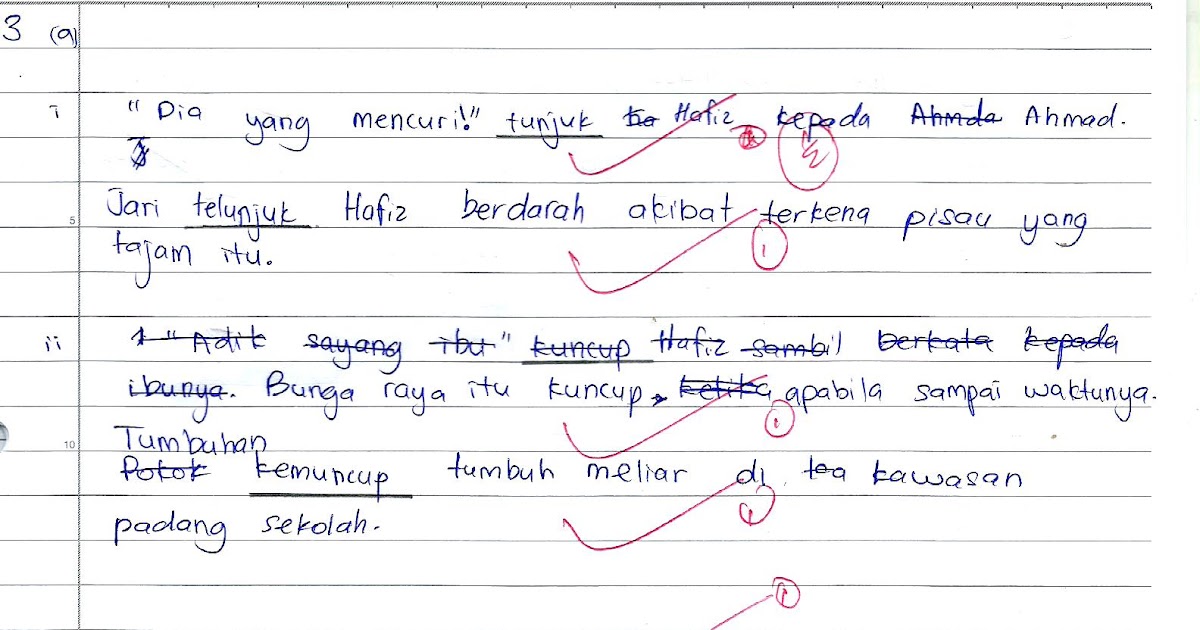 3 (a)
i "Dia yang mencuri!" tunjuk ke Hafiz kepada Ahmda Ahmad.
5 Jari telunjuk Hafiz berdarah akibat terkena pisau yang
1
tajam itu.
ii "Adik sayang ibu" kuncup Hafiz sambil berkata kepada
ibunya. Bunga raya itu kuncup ketika apabila sampai waktunya.
1
10 Tumbuhan
Potok kemuncup tumbuh meliar di kawasan
1
padang sekolah.
1